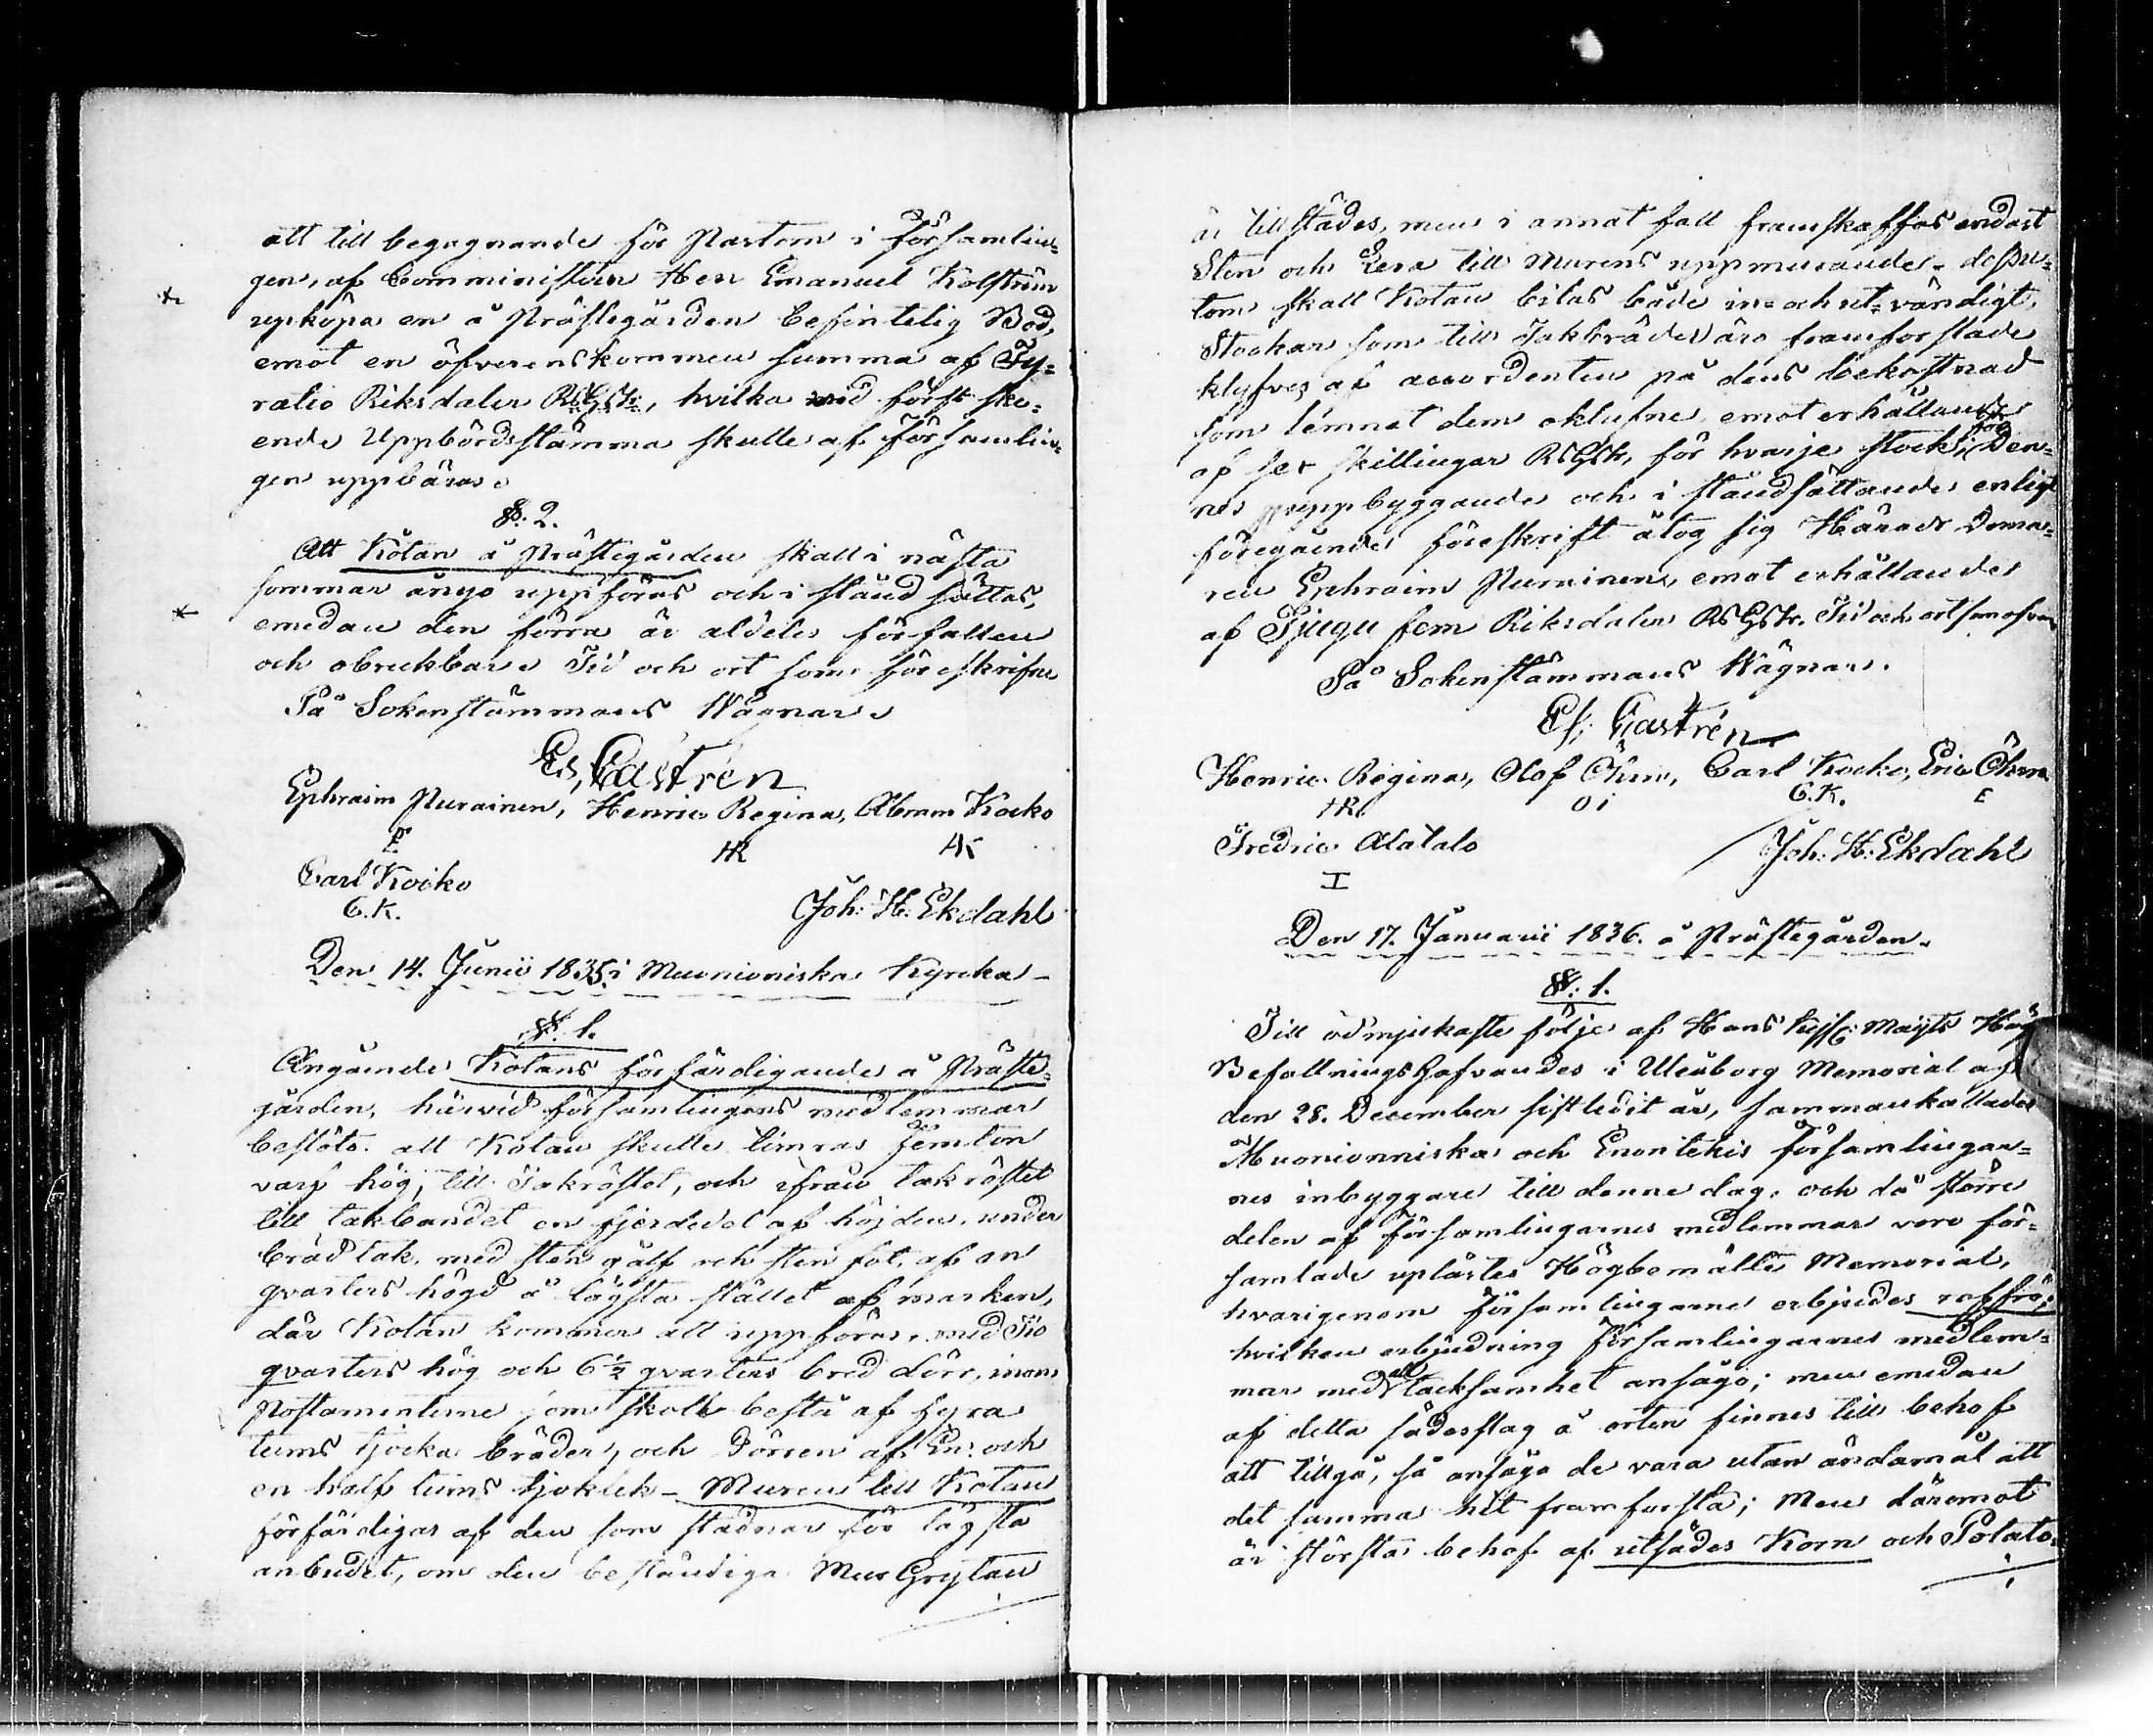 att till begagnande för Pastorn i församlin-
gen, af Comministern Herr Emanuel Kolström
upköpa en å Prästegården befintelig Bod,
emot en öfverenskommen summa af Fy-
ratio Riksdaler RGSt:, hvilka vid först ske-
ende Uppbördsstämma skulle af församlin-
gen uppbäras.
§. 2.
Att Kotan å Prästegården skall i nästa
sommar ånyo uppföras och i stånd sättas,
emedan den förra är aldeles förfallen
och obrukbar. Tid och ort som föreskrifne
På Sokenstämmans Wägnar.
Es, Castrén
Ephraim Nurainen, Henric Regina, Abram Kocko
E HR AK
Carl Kocko
C.K. Joh: H: Ekdahl
Den 14. Junii 1835. i Muonioniska Kyrcka-
§. 1.
Angående Kotans förfärdigande å Präste-
gården, härvid församlingens medlemmar
beslöts. att Kotan skulle timras femton
varf hög, till Takröstet, och ifrån takröstet
till takbandet en fjerdedel af höjden, under
brädtak, med sten gålf och sten fot, af en
qvarters högd å lägsta stället af marken,
där Kotan kommer att uppföras, med Tio
qvarters hög och 6½ qvarters bred dörr, inom
Postamenterne som skola bestå af fyra
tums tjocka bräder, och Dörren af En och
en half tums tjoklek- Muren till Kotan
förfärdigas af den som stadnar för lägsta
anbudet, om den beständiga Mur Grytan
är tillstädes, men i annat fall framskaffas endast
Sten och Lera till Murens uppmurande- dessu-
tom skall Kotan bilas både in- och ut-vändigt,
Stockar som till Takbräder äro framforslade
klyfves af accordenten på dens bekostnad
som lemnat dem oklufne emot erhållande
af sex skillingar RGSt, för hvarje stock; för Den-
nes uppbyggande och i ståndsättande enligt
föregående föreskrift åtog sig Härads Doma-
ren Ephraim Nurainen, emot erhållande
af Tjugu fem Riksdaler RGSt. Tid och ort som ofvan
På Sokenstämmans Wägnar.
Es; Castrén
Henric Regina, Olof Öhrn, Carl Kocko, Eric Öhrn
HR O i C.K. E
Fredric Alatalo Joh: H: Ekdahl
I
Den 17. Januarii 1836. å Prästegården.
§. 1.
Till ödmjukaste följe af Hans Majts
Befallningshafvandes i Uleåborg Memorial af
den 28. December sistledit år, sammankallades
Muonionniska och Enontekis församlingar-
nes inbyggare till denne dag. och då större
delen af församlingarnes medlemmar voro för-
samlade uplästes Högbemälte Memorial,
hvarigenom församlingarne erbjudes rågfrö;
hvilken erbjudning församlingarnes medlem-
mar med all tacksamhet ansågo; men emedan
af detta sädesslag å orten finnes till behof
att tillgå, så ansågo de vara utan ändamål att
det samma hit framforsla; Men däremot
är största behof af utsädes Korn och Potato-